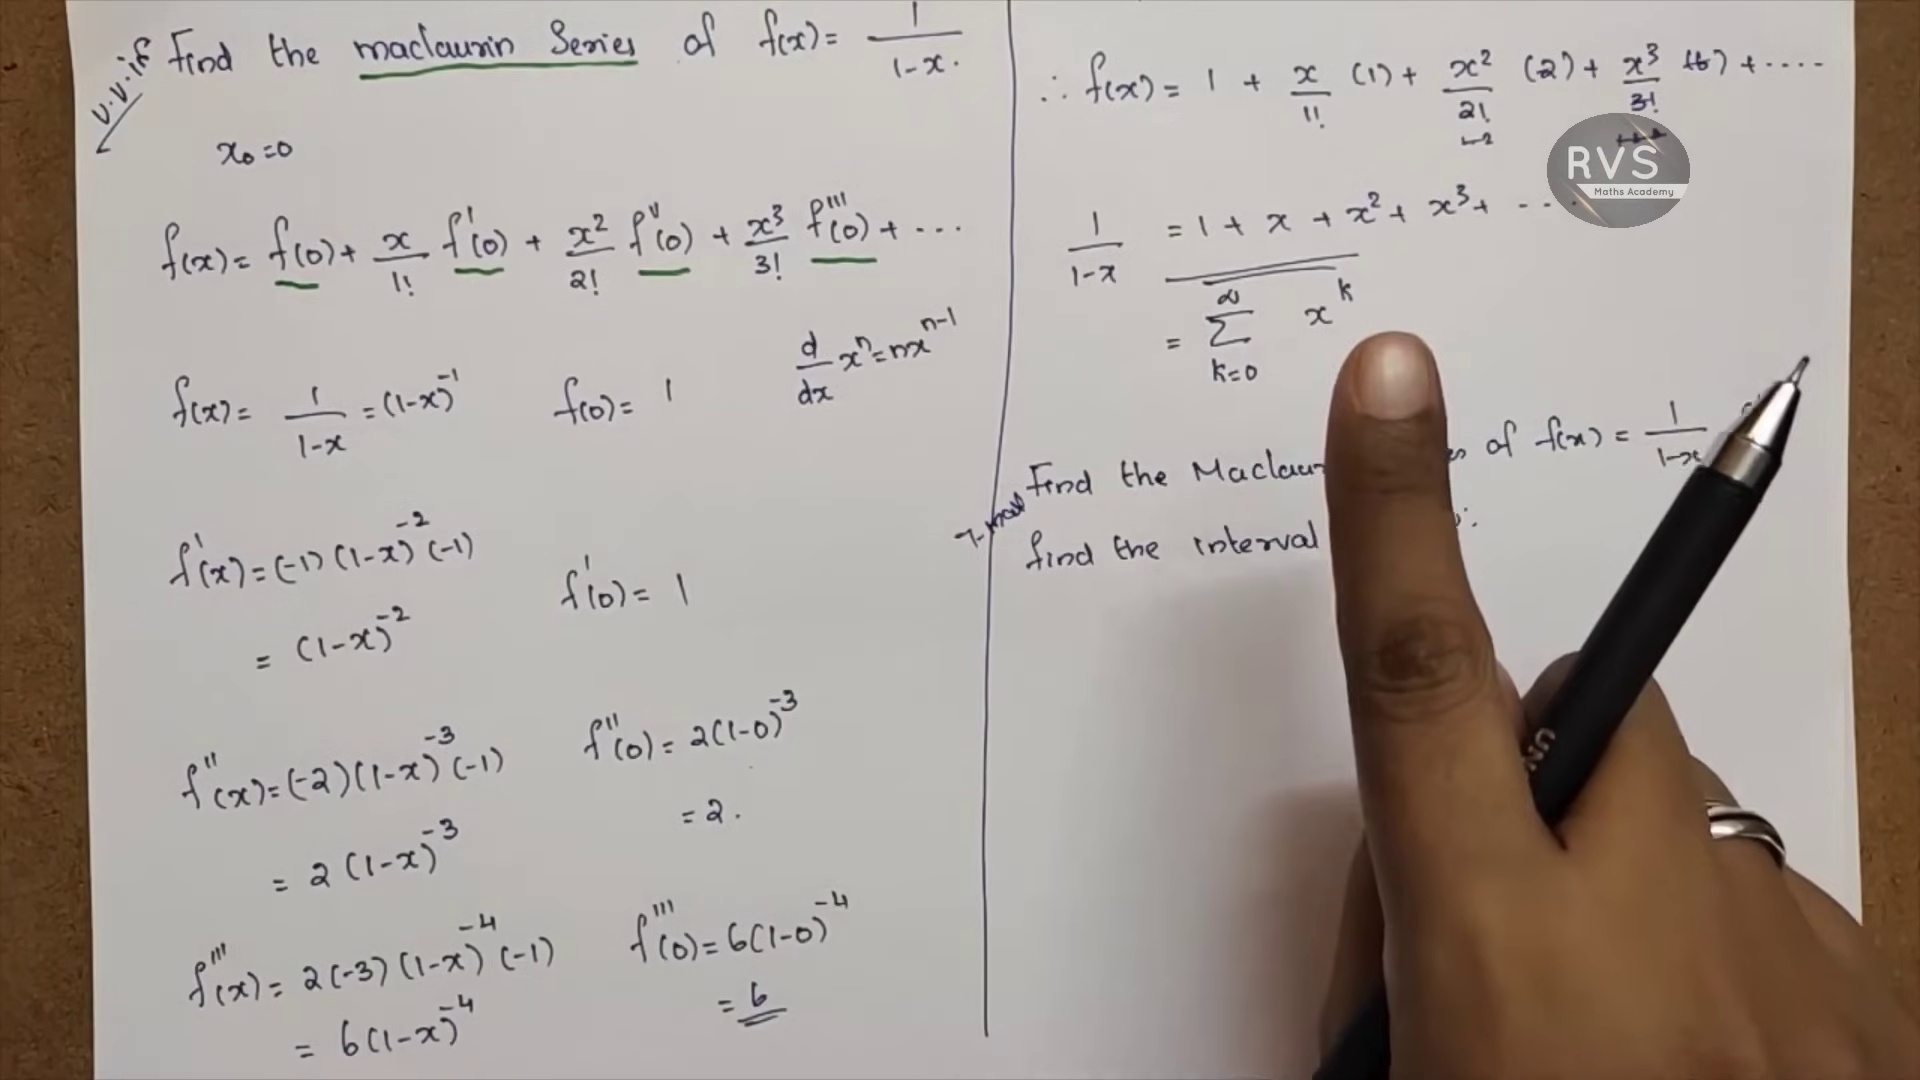 v.v.if Find the maclaurin Series of f(x) = 1/(1-x).
x₀ = 0
f(x) = f(0) + x/1! f'(0) + x²/2! f''(0) + x³/3! f'''(0) + ...
f(x) = 1/(1-x) = (1-x)⁻¹ f(0) = 1 d/dx xⁿ = nxⁿ⁻¹
f'(x) = (-1)(1-x)⁻²(-1) f'(0) = 1
= (1-x)⁻²
f''(x) = (-2)(1-x)⁻³(-1) f''(0) = 2(1-0)⁻³
= 2(1-x)⁻³ = 2.
f'''(x) = 2(-3)(1-x)⁻⁴(-1) f'''(0) = 6(1-0)⁻⁴
= 6(1-x)⁻⁴ = 6
∴ f(x) = 1 + x/1! (1) + x²/2! (2) + x³/3! (6) + ....
1·2
RVS
Maths Academy
1/(1-x) = 1 + x + x² + x³ + ....
= ∑ k=0 ∞ xᵏ
Find the of f(x) = 1/(1-x)
find the interval